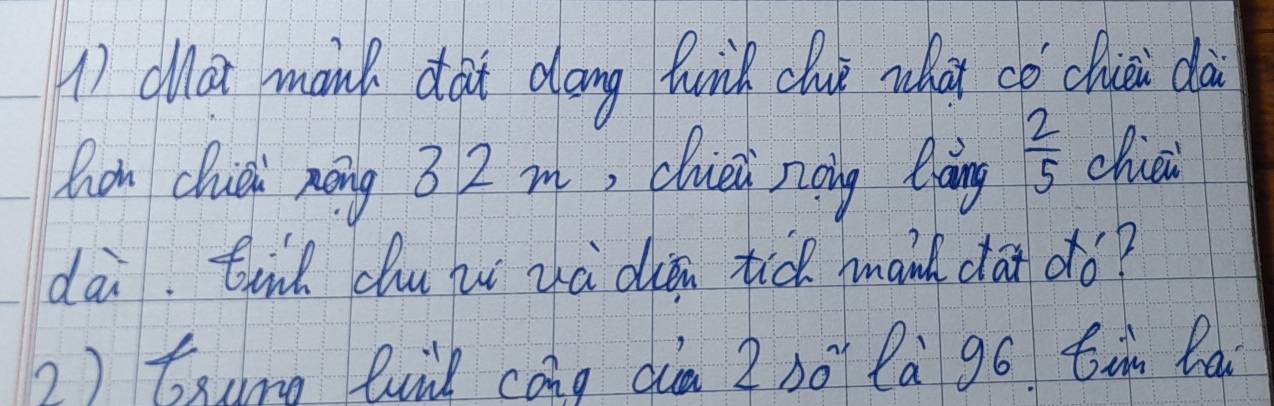 1) Một mảnh đất dạng hình chữ nhật có chiều dài
hơn chiều rộng 32 m, chiều rộng bằng 2/5 chiều
dài. Tính chu vi và diện tích mảnh đất đó?
2) Trung bình cộng của 2 số là 96. Tìm hai